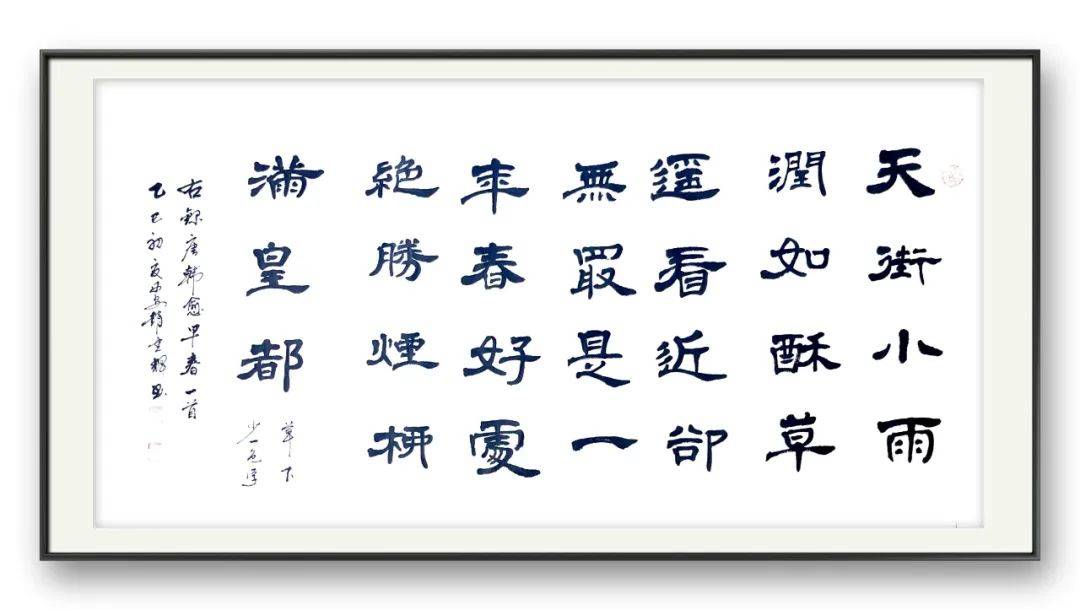 天街小雨
潤如酥草
遥看近卻
無最是一
年春好處
絶勝煙柳
滿皇都
草下
少一色
右録唐韓愈早春一首
乙巳初夏